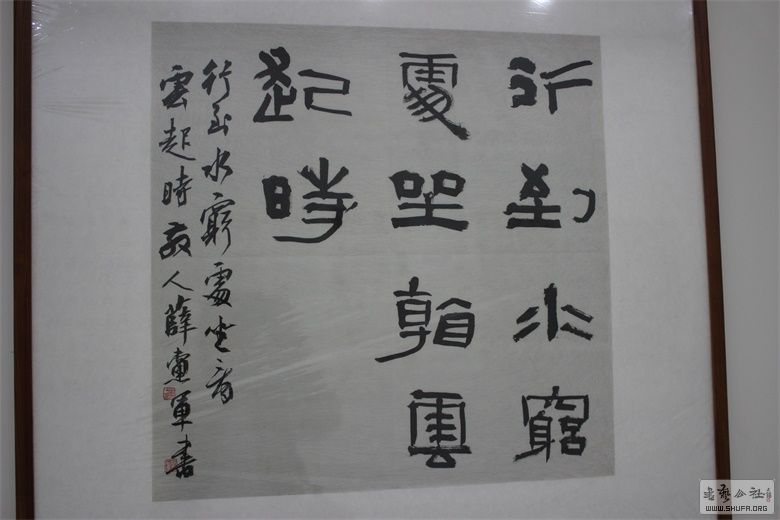 行到水窮
處坐看雲
起時
行到水窮處坐看
雲起時 人薛 軍書
书艺公社
WWW.SHUFA.ORG